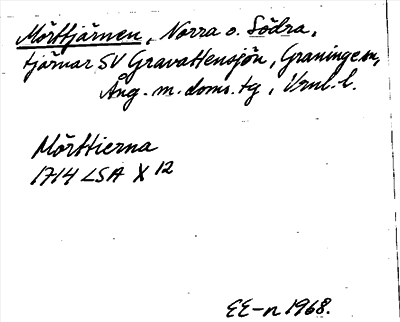 Mörttjärnen, Norra o. Södra,
tjärnar SV Gravattensjön, Graninge sn,
Ång. m. doms. tg, Vnl. l.
Mörttierna
1714 LSA X 12
EE-n 1968.